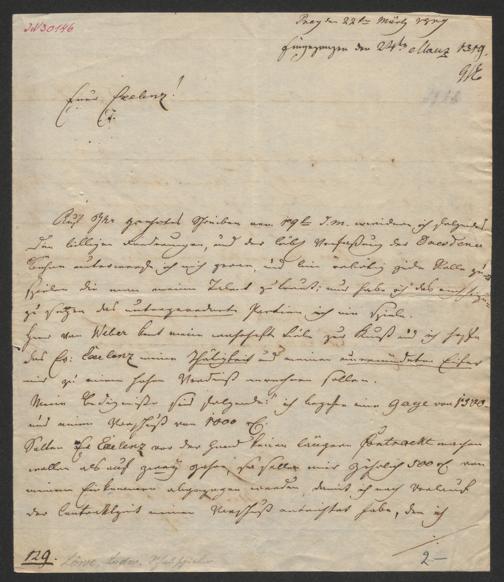 IN 30146
Prag den 22ten März 1819
Eingegangen den 24ten März 1819.
Euer Excelenz!
Auf Ihr geehrtes Schreiben vom 19ten d. M. erwiedere ich folgendes
Den billigen Forderungen, und der Verfassung des Dresdner
unterwerfe ich mich gerne, und bin erbötig jede Rolle zu
spielen die man meinem Talent zutraut; nur habe ich das
zu setzen das untergeordnete Partien ich nie spiele.
Herr von Weber kent mein zur Kunst und ich hoffe
das Eu: Exelenz meine Thätigkeit und meinen Eifer
mir zu einem hohen Verdienst anrechnen sollen.
Meine Bedignisse sind folgende: ich begehre eine Gage von
und einen Vorschuß von 1000 f.
Solten Eu Exelenz vor der Hand keinen längern Contrackt machen
wollen als auf zwey Jahre, so sollen mir jährlich 500 f. von
meinem Einkommen abgezogen werden, damit ich nach Verlauf
der Contrecktzeit meinen Vorschuß entrichtet habe, den ich
129.
Löwe, Schauspieler
2–